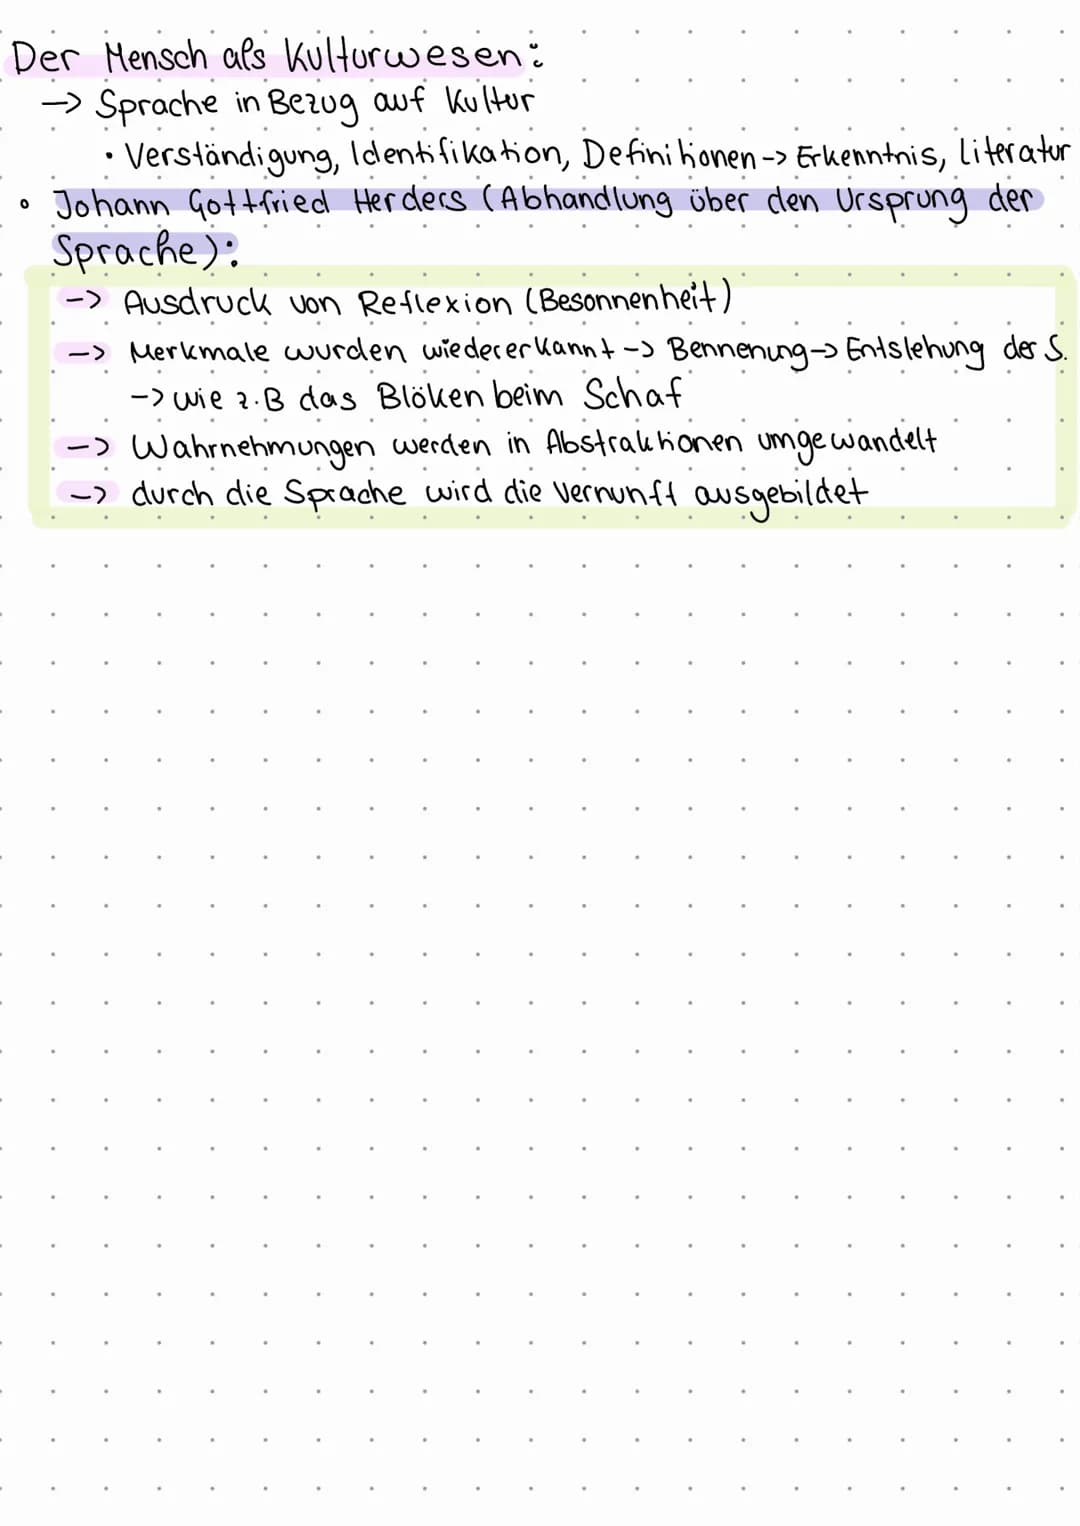 Der Mensch als Kulturwesen:
-> Sprache in Bezug auf Kultur
• Verständigung, Identifikation, Definitionen -> Erkenntnis, Literatur
• Johann Gottfried Herders (Abhandlung über den Ursprung der
Sprache):
-> Ausdruck von Reflexion (Besonnenheit)
-> Merkmale wurden wiedererkannt -> Bennenung -> Entstehung der S.
-> wie z.B das Blöken beim Schaf
-> Wahrnehmungen werden in Abstraktionen umgewandelt
-> durch die Sprache wird die Vernunft ausgebildet